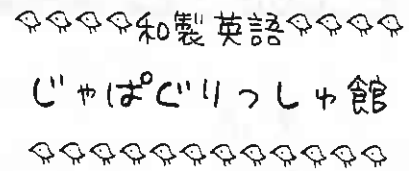 和製英語
じゃぱぐりっしゅ館